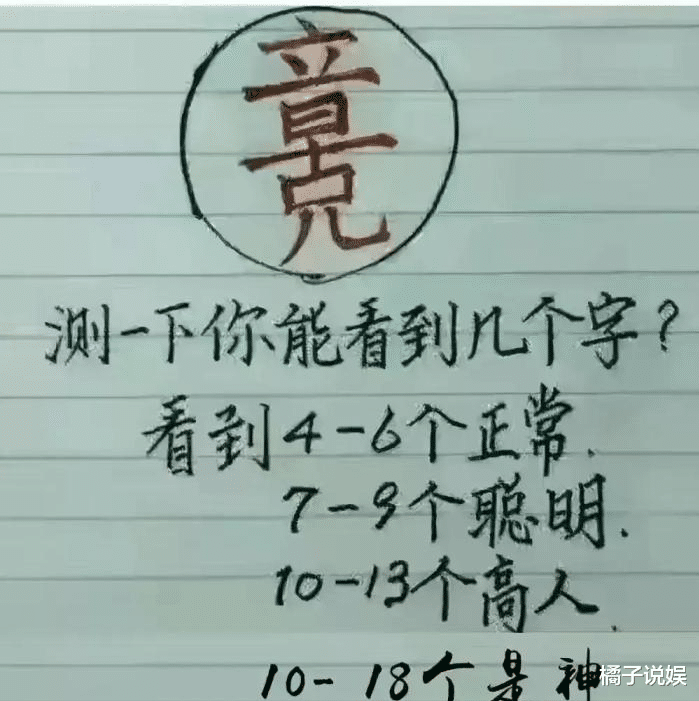 测一下你能看到几个字?
看到4-6个正常.
7-9个聪明.
10-13个高人.
10-18个是神
橘子说娱